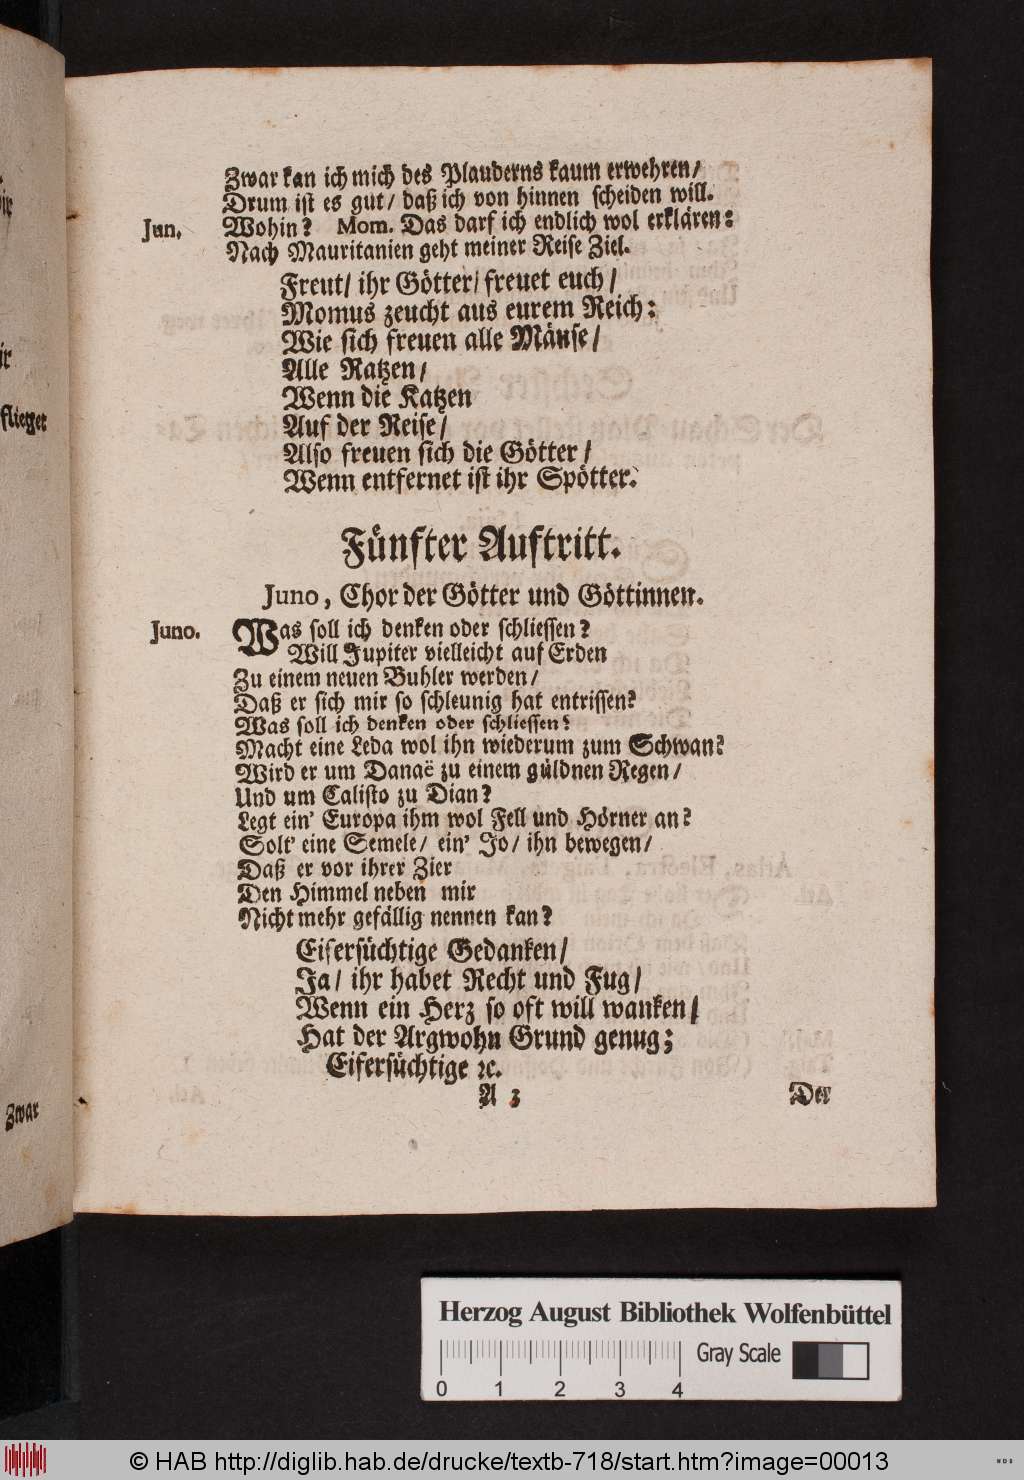 Zwar kan ich mich des Plauderns kaum erwehren/
Drum ist es gut/ daß ich von hinnen scheiden will.
Jun. Wohin? Mom. Das darf ich endlich wol erklären:
Nach Mauritanien geht meiner Reise Ziel.
Freut/ ihr Götter/ freuet euch/
Momus zeucht aus eurem Reich:
Wie sich freuen alle Mäuse/
Alle Ratzen/
Wenn die Katzen
Auf der Reise/
Also freuen sich die Götter/
Wenn entfernet ist ihr Spötter.
Fünfter Auftritt.
Juno, Chor der Götter und Göttinnen.
Juno. Was soll ich denken oder schliessen?
Will Jupiter vielleicht auf Erden
Zu einem neuen Buhler werden/
Daß er sich mir so schleunig hat entrissen?
Was soll ich denken oder schliessen?
Macht eine Leda wol ihn wiederum zum Schwan?
Wird er um Danaë zu einem güldnen Regen/
Und um Calisto zu Dian?
Legt ein' Europa ihm wol Fell und Hörner an?
Solt' eine Semele/ ein' Jo/ ihn bewegen/
Daß er vor ihrer Zier
Den Himmel neben mir
Nicht mehr gefällig nennen kan?
Eifersüchtige Gedanken/
Ja/ ihr habet Recht und Fug/
Wenn ein Herz so oft will wanken/
Hat der Argwohn Grund genug;
Eifersüchtige ꝛc.
A 3 Der
flieget
Zwar
Herzog August Bibliothek Wolfenbüttel
Gray Scale
0 1 2 3 4
© HAB http://diglib.hab.de/drucke/textb-718/start.htm?image=00013